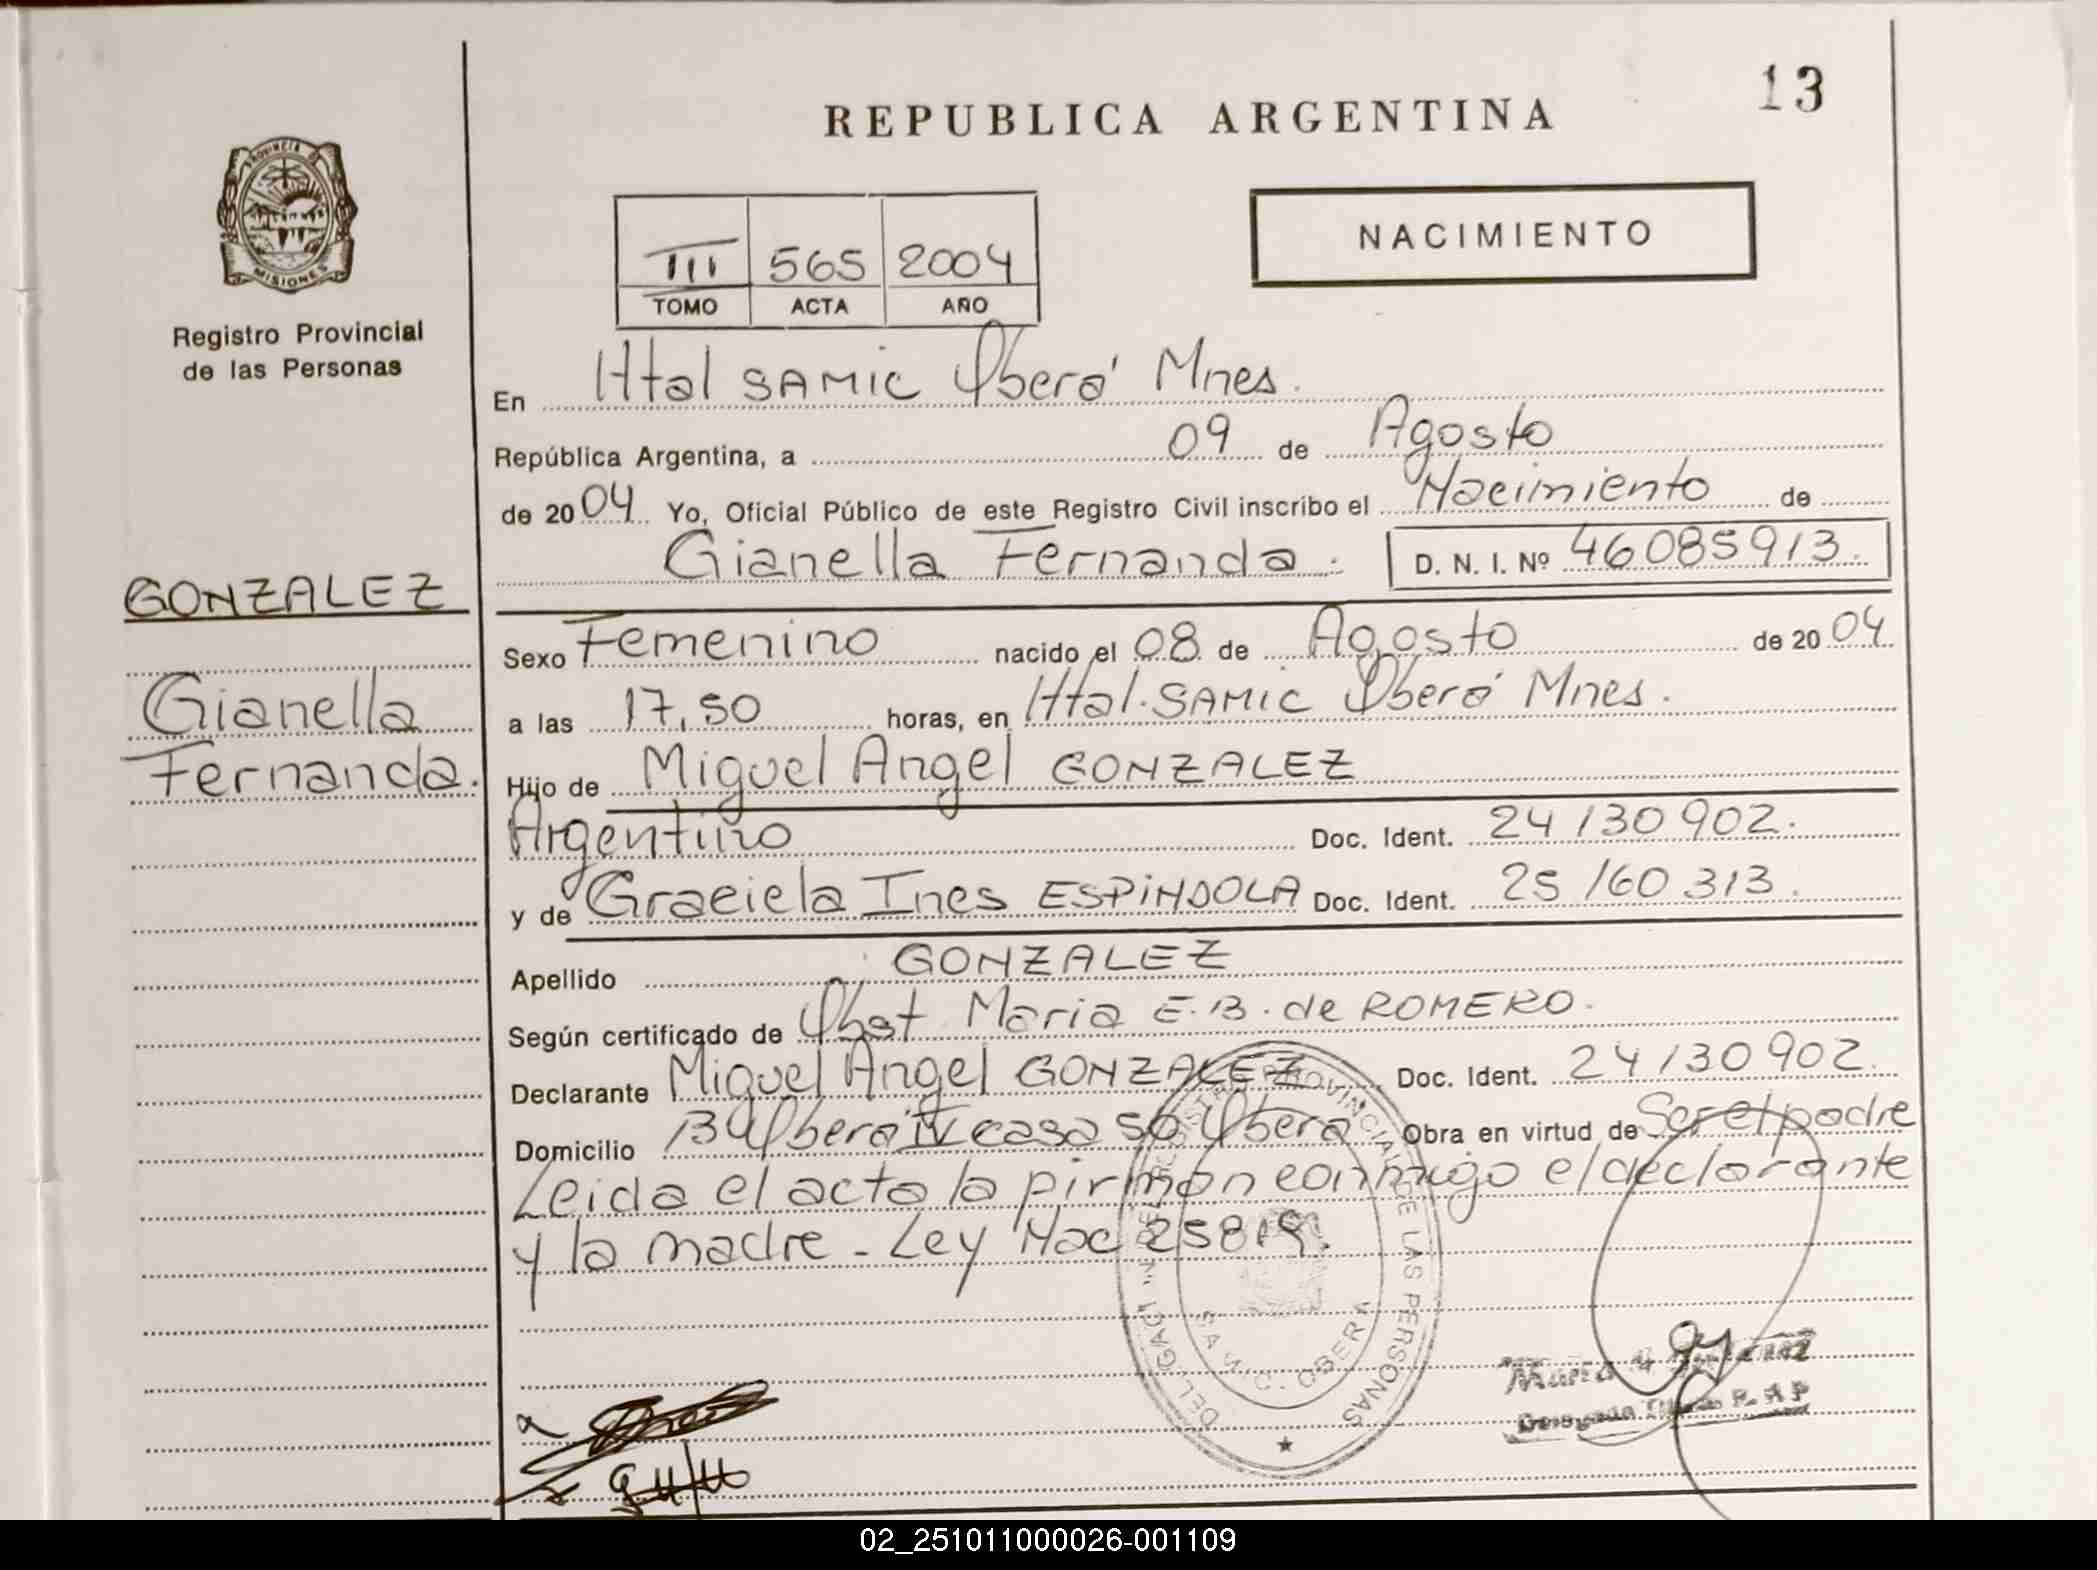 REPUBLICA ARGENTINA
13
PROVINCIA DE
MISIONES
Registro Provincial
de las Personas
III 565 2004
TOMO ACTA AÑO
NACIMIENTO
En Htal SAMIC Oberá Mnes.
República Argentina, a 09 de Agosto
de 2004 Yo, Oficial Público de este Registro Civil inscribo el Nacimiento de
Gianella Fernanda. D. N. I. Nº 46085913.
GONZALEZ
Gianella
Fernanda.
Sexo Femenino nacido el 08 de Agosto de 2004
a las 17,50 horas, en Htal. SAMIC Oberá Mnes.
Hijo de Miguel Angel GONZALEZ
Argentino Doc. Ident. 24130902.
y de Graciela Ines ESPINDOLA Doc. Ident. 25160313.
Apellido GONZALEZ
Según certificado de Obst Maria E.B. de ROMERO.
Declarante Miguel Angel GONZALEZ Doc. Ident. 24130902.
Domicilio Bº Oberá IV casa 50 Oberá Obra en virtud de Ser el padre
Leida el acta la firman conmigo el declarante
y la madre - Ley Nac 25819.
REGISTRO PROVINCIAL DE LAS PERSONAS
S.A.M.I.C. OBERA
Maria
R. P.
02_251011000026-001109